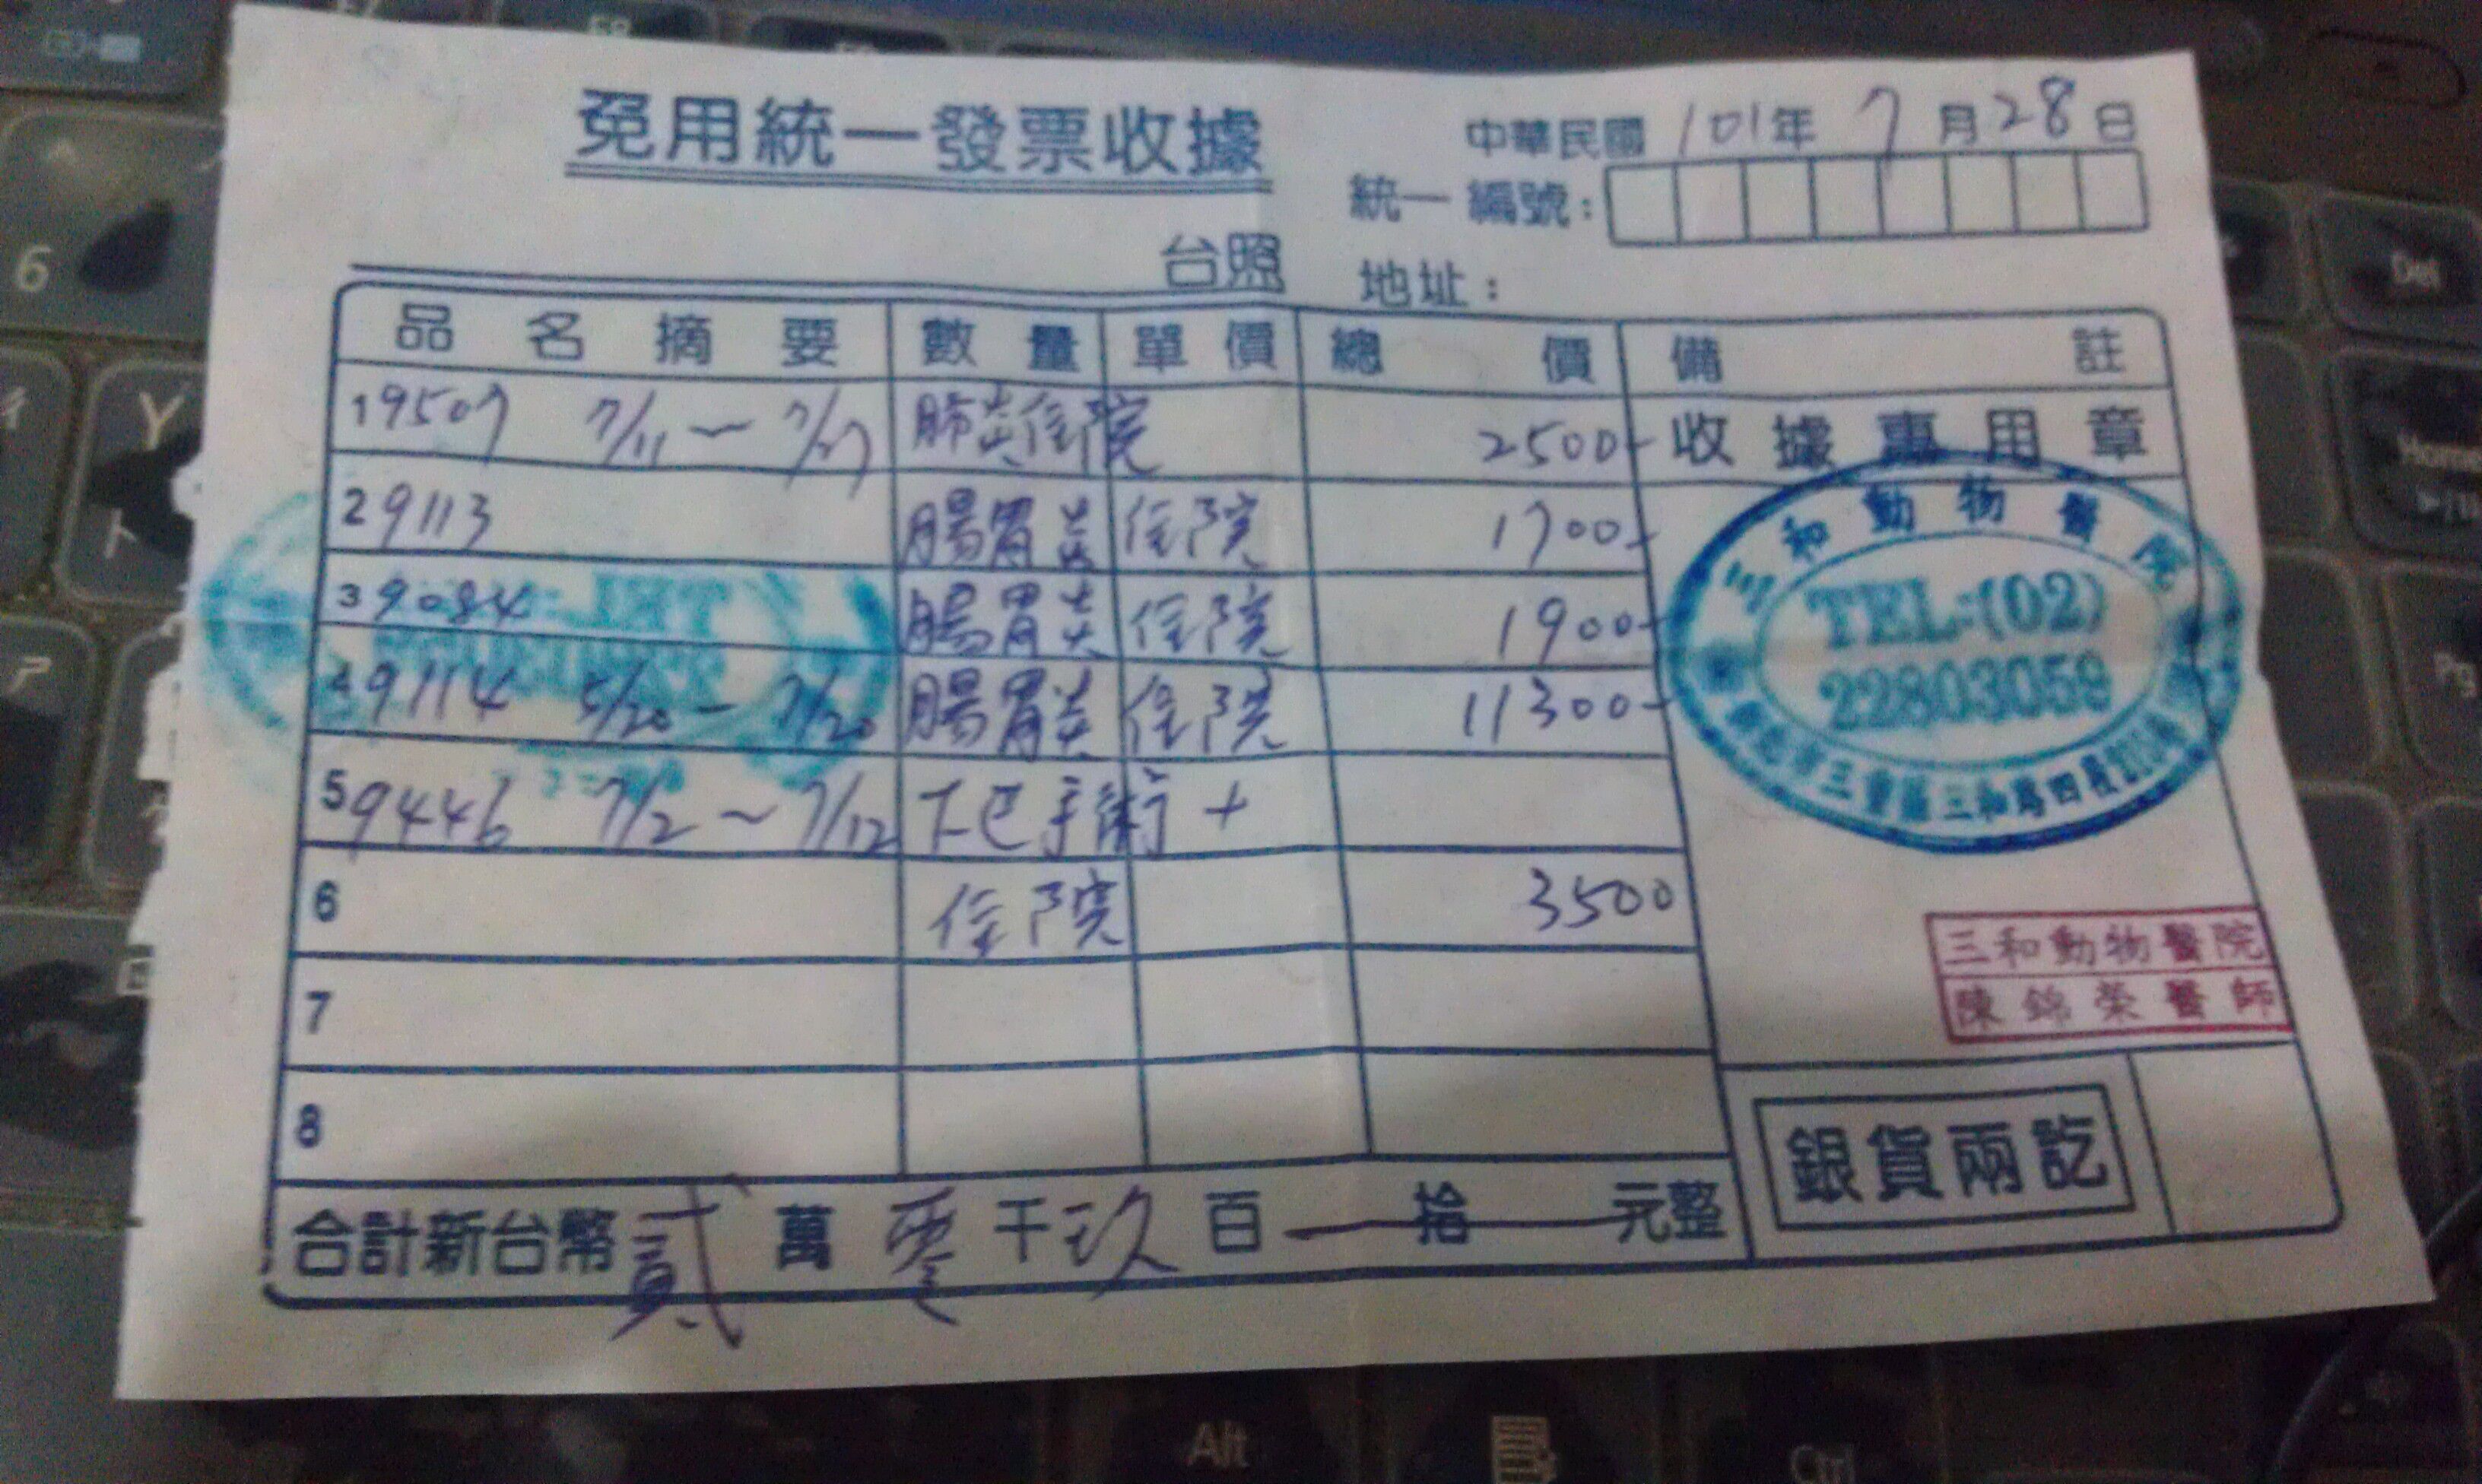 免用統一發票收據
中華民國 101年 7月28日
統一編號：
台照
地址：
品名摘要 數量 單價 總價 備註
1 9507 7/11～7/27 肺炎住院 2500- 收據專用章
2 9113 腸胃炎住院 1700-
3 9084 腸胃炎住院 1900-
4 9114 5/20-7/20 腸胃炎住院 11300-
5 9446 7/2～7/12 下巴手術+
6 住院 3500
7
8
三和動物醫院
TEL:(02)
22803059
三重區三和路四段
三和動物醫院
陳錦榮醫師
合計新台幣貳萬零千玖百拾元整
銀貨兩訖
6
Y
Alt
Ctrl
Del
Home